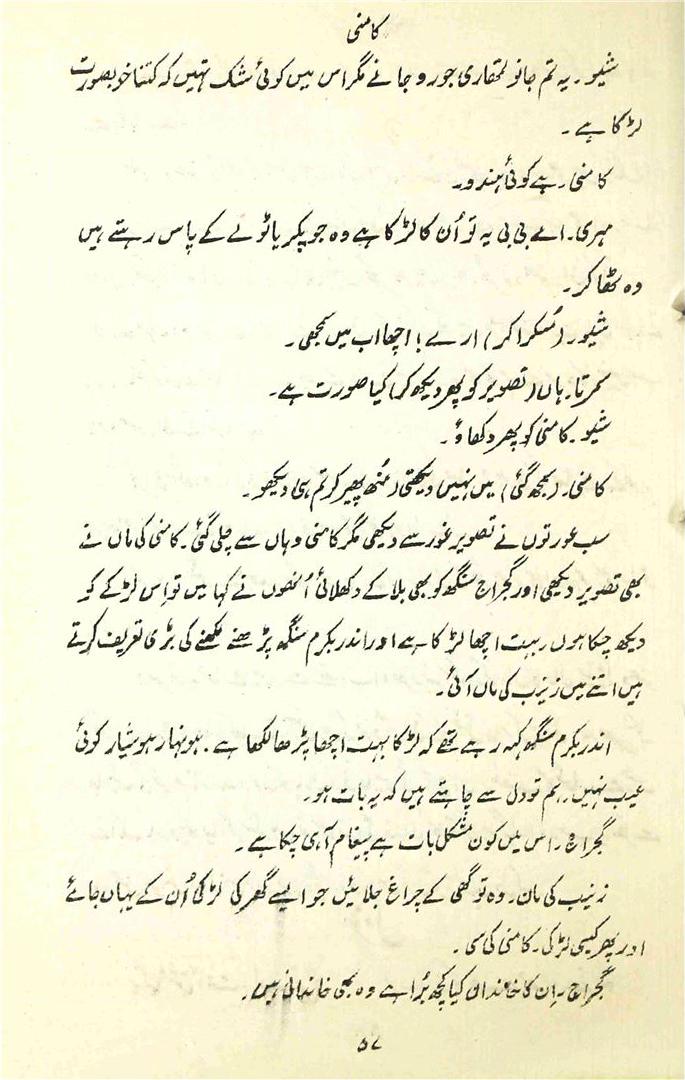 کامنی
شیو۔ یہ تم جانو تمھاری جورو جانے مگر اس میں کوئی شک نہیں کہ کتنا خوبصورت
لڑکا ہے۔
کامنی۔ ہے کوئی ہندو۔
مہری۔ اے بی بی یہ تو اُن کا لڑکا ہے وہ جو پکریا ٹولے کے پاس رہتے ہیں
وہ ٹھاکر۔
شیو۔ (مُسکراکر) ارے! اچھا اب میں سمجھی۔
سمرتا۔ ہاں (تصویر کو پھر دیکھ کر) کیا صورت ہے۔
شیو۔ کامنی کو پھر دکھاؤ۔
کامنی۔ (سمجھ گئی) میں نہیں دیکھتی (مُنھ پھیر کر تم ہی دیکھو۔
سب عورتوں نے تصویر غور سے دیکھی مگر کامنی وہاں سے چلی گئی۔ کامنی کی ماں نے
بھی تصویر دیکھی اور گجراج سنگھ کو بھی بلا کے دکھلائی اُنھوں نے کہا میں تو اِس لڑکے کو
دیکھ چکا ہوں بہت اچھا لڑکا ہے اور اندر بکرم سنگھ پڑھنے لکھنے کی بڑی تعریف کرتے
ہیں اتنے میں زینب کی ماں آئی۔
اندر بکرم سنگھ کہہ رہے تھے کہ لڑکا بہت اچھا پڑھا لکھا ہے۔ ہونہار ہوشیار کوئی
عیب نہیں۔ ہم تو دل سے چاہتے ہیں کہ یہ بات ہو۔
گجراج۔ اس میں کون مشکل بات ہے پیغام آہی چکا ہے۔
زینب کی مان۔ وہ تو گھی کے چراغ جلائیں جو ایسے گھر کی لڑکی اُن کے یہاں جائے
اور پھر کیسی لڑکی۔ کامنی کی سی۔
گجراج۔ اِن کا خاندان کیا کچھ بُرا ہے وہ بھی خاندانی ہیں۔
۵۷